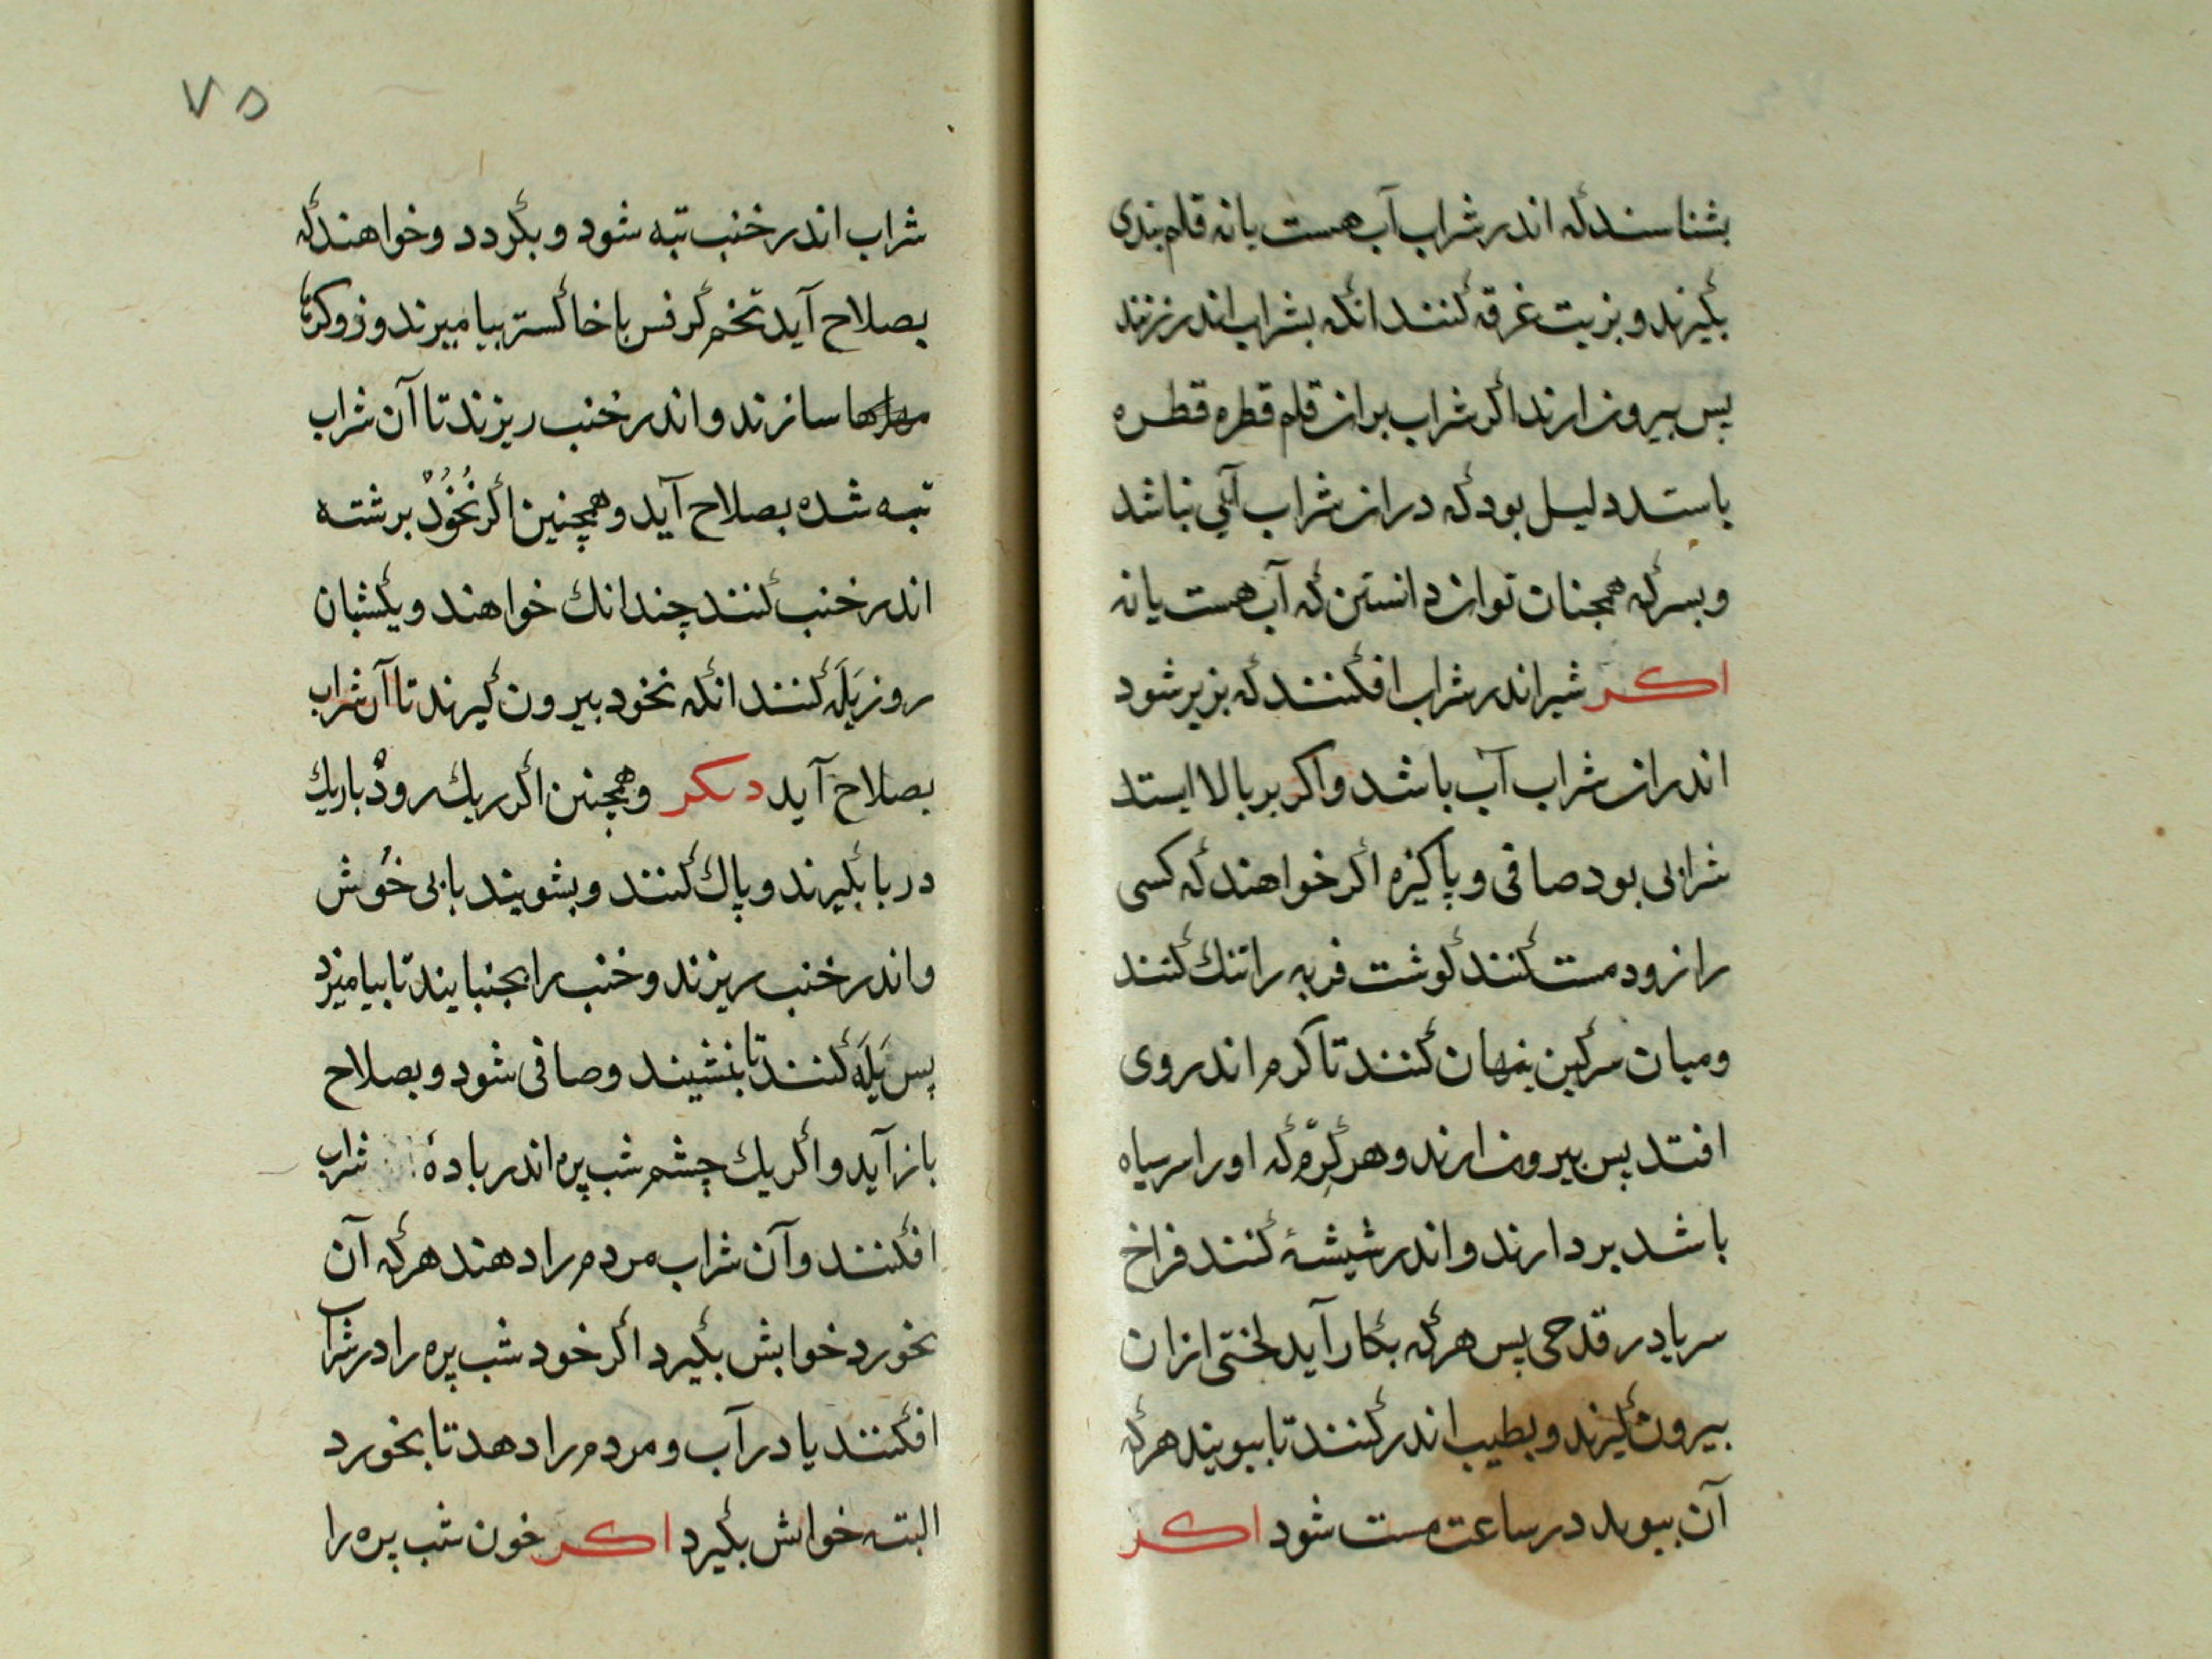 بشناسند که اندر شراب آب هست یا نه قلم بندی
بگیرند و بزیت غرقه کنند انکه بشراب اندر زنند
پس بیرون ارند اکر شراب بران قلم قطره قطره
باستد دلیل بود که دران شراب آبی نباشد
و بسرکه همجنان توان دانستن که آب هست یا نه
اکر شیر اندر شراب افکنند که بزیر شود
اندران شراب آب باشد و اکر بر بالا ایستد
شرابی بود صافی و پاکیزه اکر خواهند که کسی
را زود مست کنند کوشت فربه را تنك کنند
و میان سرکین پنهان کنند تا کرم اندر وی
افتد پس بیرون ارند و هر کرم که او را سر سیاه
باشد بردارند و اندر شیشهٔ کنند فراخ
سر یا در قدحی پس هرکه بکار آید لختی ازان
بیرون کیرند و بطیب اندر کنند تا ببویند هرکه
آن ببوید در ساعت مست شود اکر
۷۵
شراب اندر خنب تبه شود و بکردد و خواهند که
بصلاح آید تخم کرفس با خاکستر بیامیزند و زو
سازند و اندر خنب ریزند تا آن شراب
تبه شده بصلاح آید و همچنین اکر نخود برشته
اندر خنب کنند چندانك خواهند و یکشبان
روز یله کنند انکه نخود بیرون کیرند تا آن شراب
بصلاح آید دیکر و همچنین اکر ریك رود باریك
دربا بکیرند و پاك کنند و بشویند بابی خوش
و اندر خنب ریزند و خنب را بجنبانند تا بیامیزد
پس یله کنند تا بنشیند و صافی شود و بصلاح
باز آید و اکر یك چشم شب پره اندر بادهٔ شراب
افکنند و آن شراب مردم را دهند هرکه آن
بخورد خوابش بکیرد اکر خود شب پره را در شراب
افکنند یا در آب و مردم را دهد تا بخورد
البته خوابش بکیرد اکر خون شب پره را